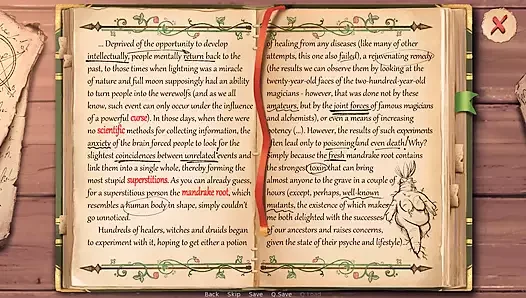 ... Deprived of the opportunity to develop
intellectually, people mentally return back to the
past, to those times when lightning was a miracle
of nature and full moon supposingly had an ability
to turn people into the werewolfs (and as we all
know, such event can only occur under the influence
of a powerful curse). In those days, when there were
no scientific methods for collecting information, the
anxiety of the brain forced people to look for the
slightest coincidences between unrelated events and
link them into a single whole, thereby forming the
most stupid superstitions. As you can already guess,
for a superstitious person the mandrake root, which
resembles a human body in shape, simply couldn't
go unnoticed.
Hundreds of healers, witches and druids began
to experiment with it, hoping to get either a potion
of healing from any diseases (like many of other
attempts, this one also failed), a rejuvenating remedy
(the results we can observe them by looking at the
twenty-year-old faces of the two-hundred-year-old
magicians - however, that was done not by these
amateurs, but by the joint forces of famous magicians
and alchemists), or even a means of increasing
potency (...). However, the results of such experiments
often lead only to poisoning (and even death). Why?
Simply because the fresh mandrake root contains
the strongest toxin that can bring
almost anyone to the grave in a couple of
hours (except, perhaps, well-known
mutants, the existence of which makes
me both delighted with the successes
of our ancestors and raises concerns,
given the state of their psyche and lifestyle).
Back Skip Save Q.Save